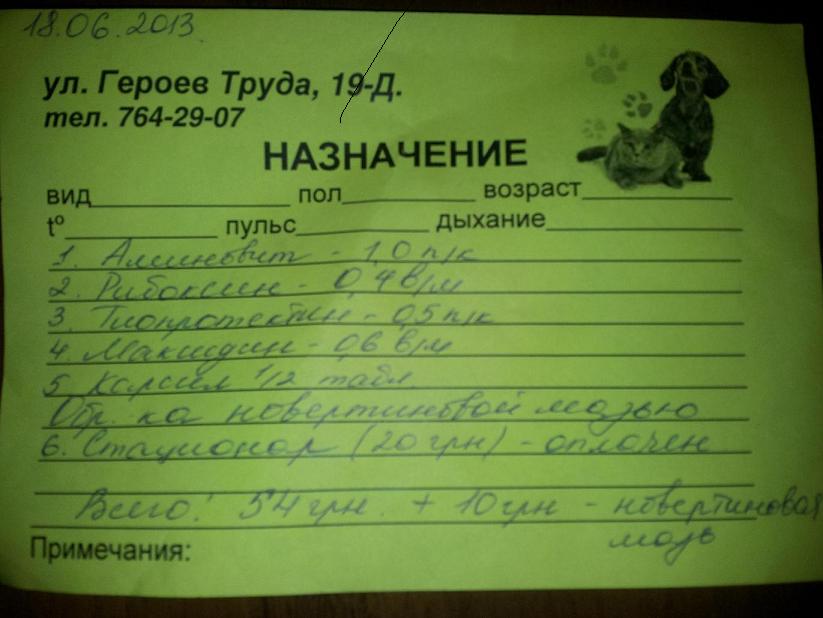 18.06.2013
ул. Героев Труда, 19-Д.
тел. 764-29-07
НАЗНАЧЕНИЕ
вид____________ пол____________ возраст____________
t°____________ пульс____________ дыхание____________
1. Аминовит - 1,0 п/к
2. Рибоксин - 0,4 в/м
3. Тиопротектин - 0,5 п/к
4. Максидин - 0,6 в/м
5 Карсил 1/2 табл.
Обр. ка новертиновой мазью
6. Стационар (20 грн) - оплачен
Всего: 54 грн. + 10 грн - новертиновая
мазь
Примечания: